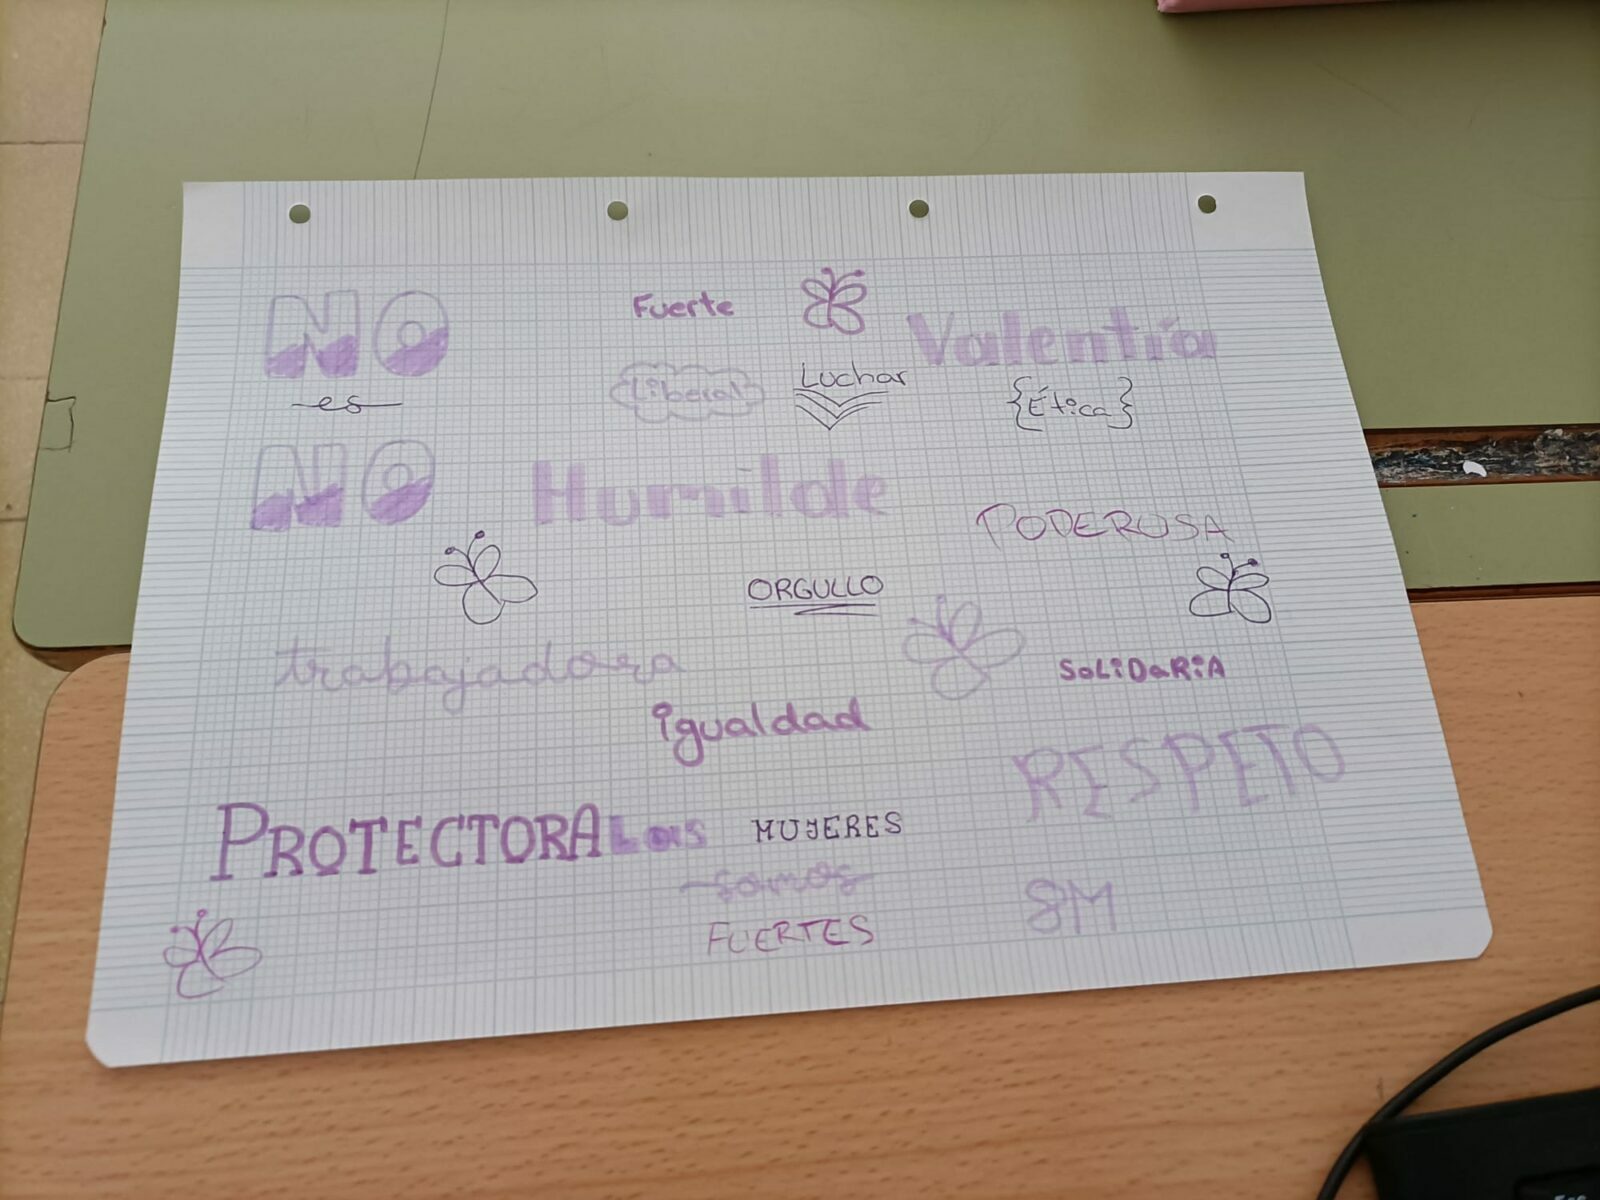 NO
es
NO
Fuerte
Valentía
Liberal
Luchar
{Ética}
Humilde
PODEROSA
ORGULLO
trabajadora
SOLiDaRiA
igualdad
RESPETO
PROTECTORA
Las MUJERES
somos
FUERTES
8M